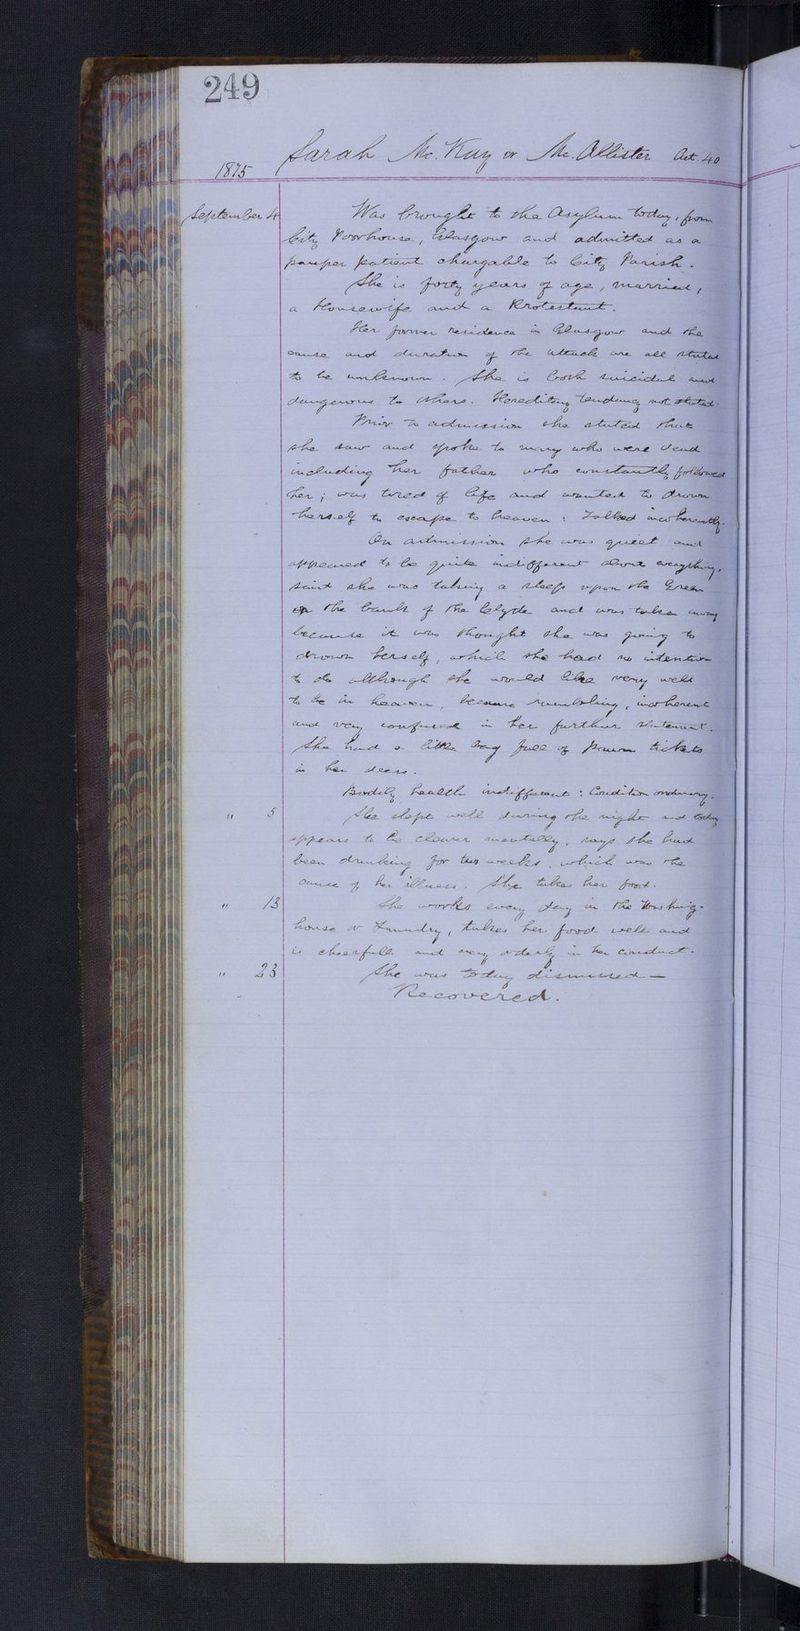 249
1875 Sarah Mc. Kay or Mc. Allister Aet. 40
September 4 Was brought to the Asylum today, from
City Poorhouse, Glasgow and admitted as a
pauper patient chargable to City Parish.
She is forty years of age, married,
a Housewife and a Protestant.
Her former residence in Glasgow and the
cause and duration of the attack are all stated
to be unknown. She is both suicidal and
dangerous to others. Hereditary tendency not stated.
Prior to admission she stated that
she saw and spoke to many who were dead
including her father who constantly followed
her; was tired of life and wanted to drown
herself to escape to heaven: Talked incoherently.
On admission she was quiet and
appeared to be quite indifferent about everything,
said she was taking a sleep upon the Green
on the bank of the Clyde and was taken away
because it was thought she was going to
drown herself, which she had no intention
to do although she would like very well
to be in heaven, became rambling, incoherent
and very confused in her further statement.
She had a little bag full of pawn tickets
in her
Bodily health indifferent: Condition ordinary.
" 5 She slept well during the night and today
appears to be clearer mentally, says she had
been drinking for two weeks, which was the
cause of her illness. She takes her food.
" 13 She works every day in the Washing-
house or Laundry, takes her food well and
is cheerfull and very orderly in her conduct.
" 23 She was today dismissed —
Recovered.